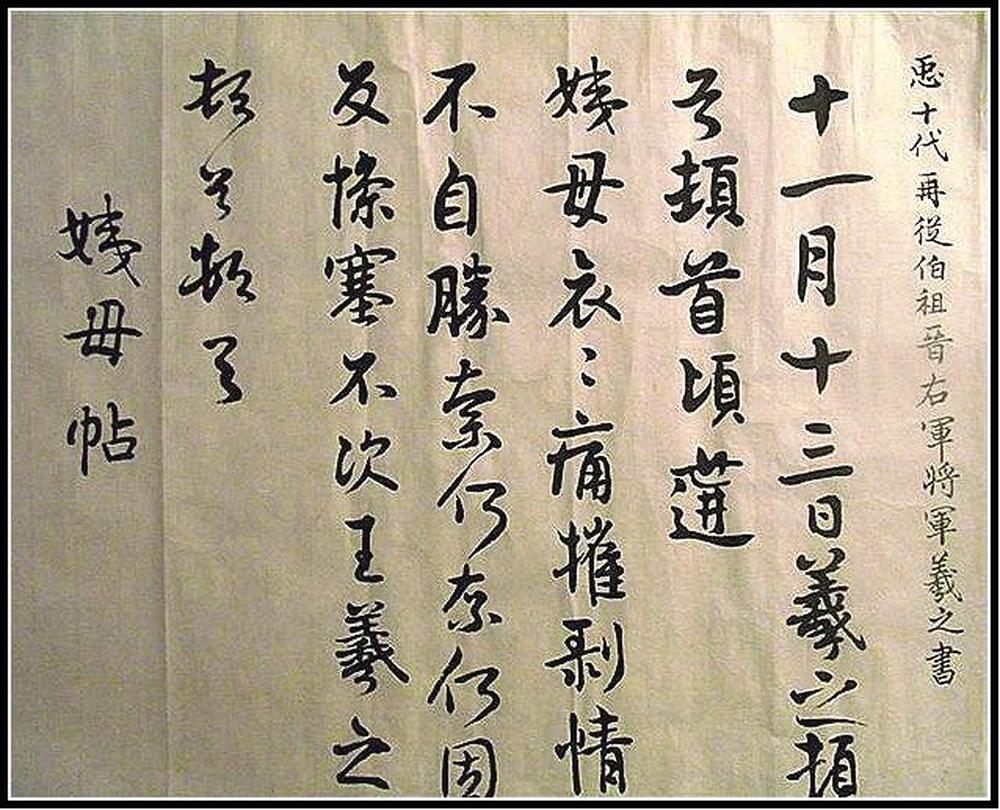 十代再從伯祖晉右軍將軍羲之書
十一月十三日羲之頓
首頓首頃遘
姨母哀〻痛摧剝情
不自勝奈何奈何因
反慘塞不次王羲之
頓首頓首
姨母帖